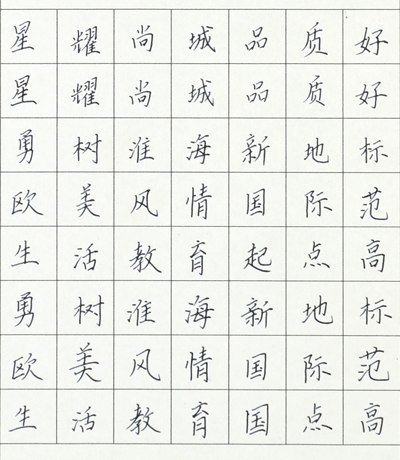 星耀尚城品质好
星耀尚城品质好
勇树淮海新地标
欧美风情国际范
生活教育起点高
勇树淮海新地标
欧美风情国际范
生活教育国点高